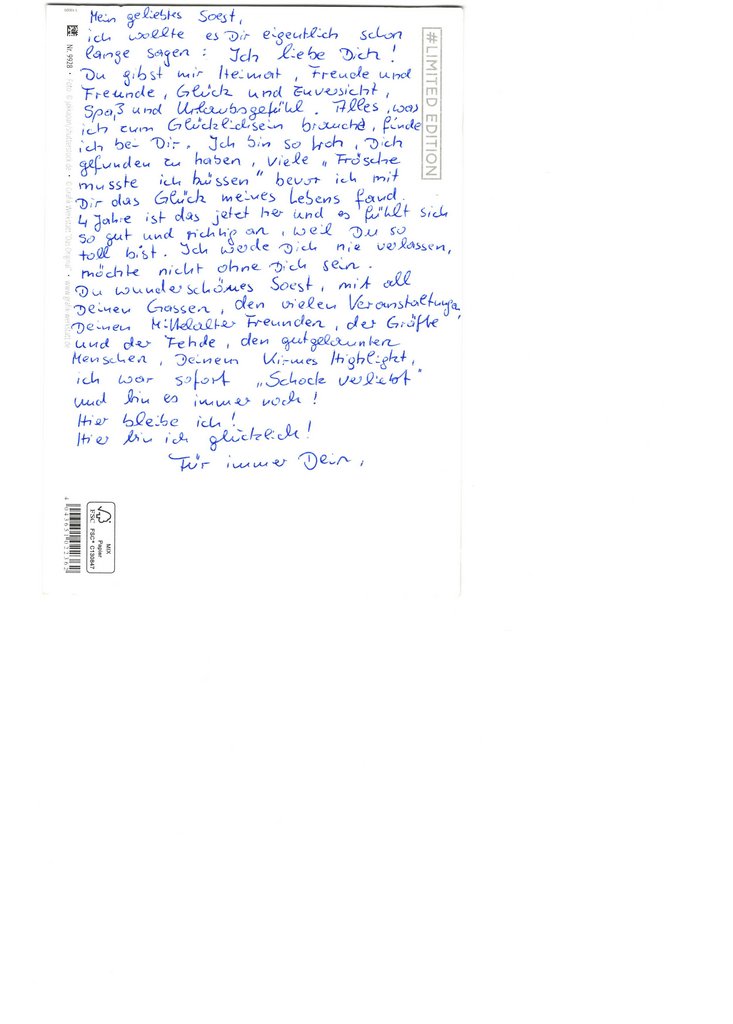 Mein geliebtes Soest,
ich wollte es Dir eigentlich schon
lange sagen: Ich liebe Dich!
Du gibst mir Heimat, Freude und
Freunde, Glück und Zuversicht,
Spaß und Urlaubsgefühl. Alles, was
ich zum Glücklichsein brauche, finde
ich bei Dir. Ich bin so froh, Dich
gefunden zu haben, viele „Frösche
musste ich küssen" bevor ich mit
Dir das Glück meines Lebens fand.
4 Jahre ist das jetzt her und es fühlt sich
so gut und richtig an, weil Du so
toll bist. Ich werde Dich nie verlassen,
möchte nicht ohne Dich sein.
Du wunderschönes Soest, mit all
Deinen Gassen, den vielen Veranstaltungen,
Deinen Mittelalter Freunden, der Gräfte
und der Fehde, den gutgelaunten
Menschen, Deinem Kirmes Highlight,
ich war sofort „Schock verliebt"
und bin es immer noch!
Hier bleibe ich!
Hier bin ich glücklich!
Für immer Dein,
#LIMITED EDITION
Nr. 9928
MIX
Papier
FSC
FSC® C130847
4 043651 022362